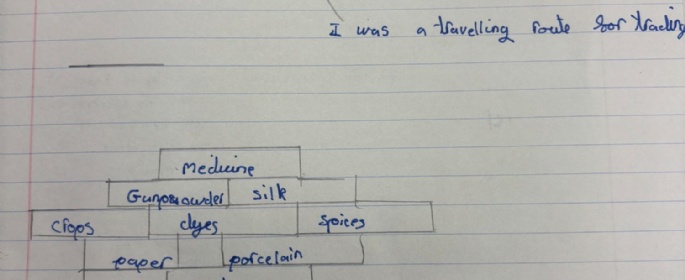 I was a travelling route for trading
Medicine
Gunpowder silk
crops dyes spices
paper porcelain